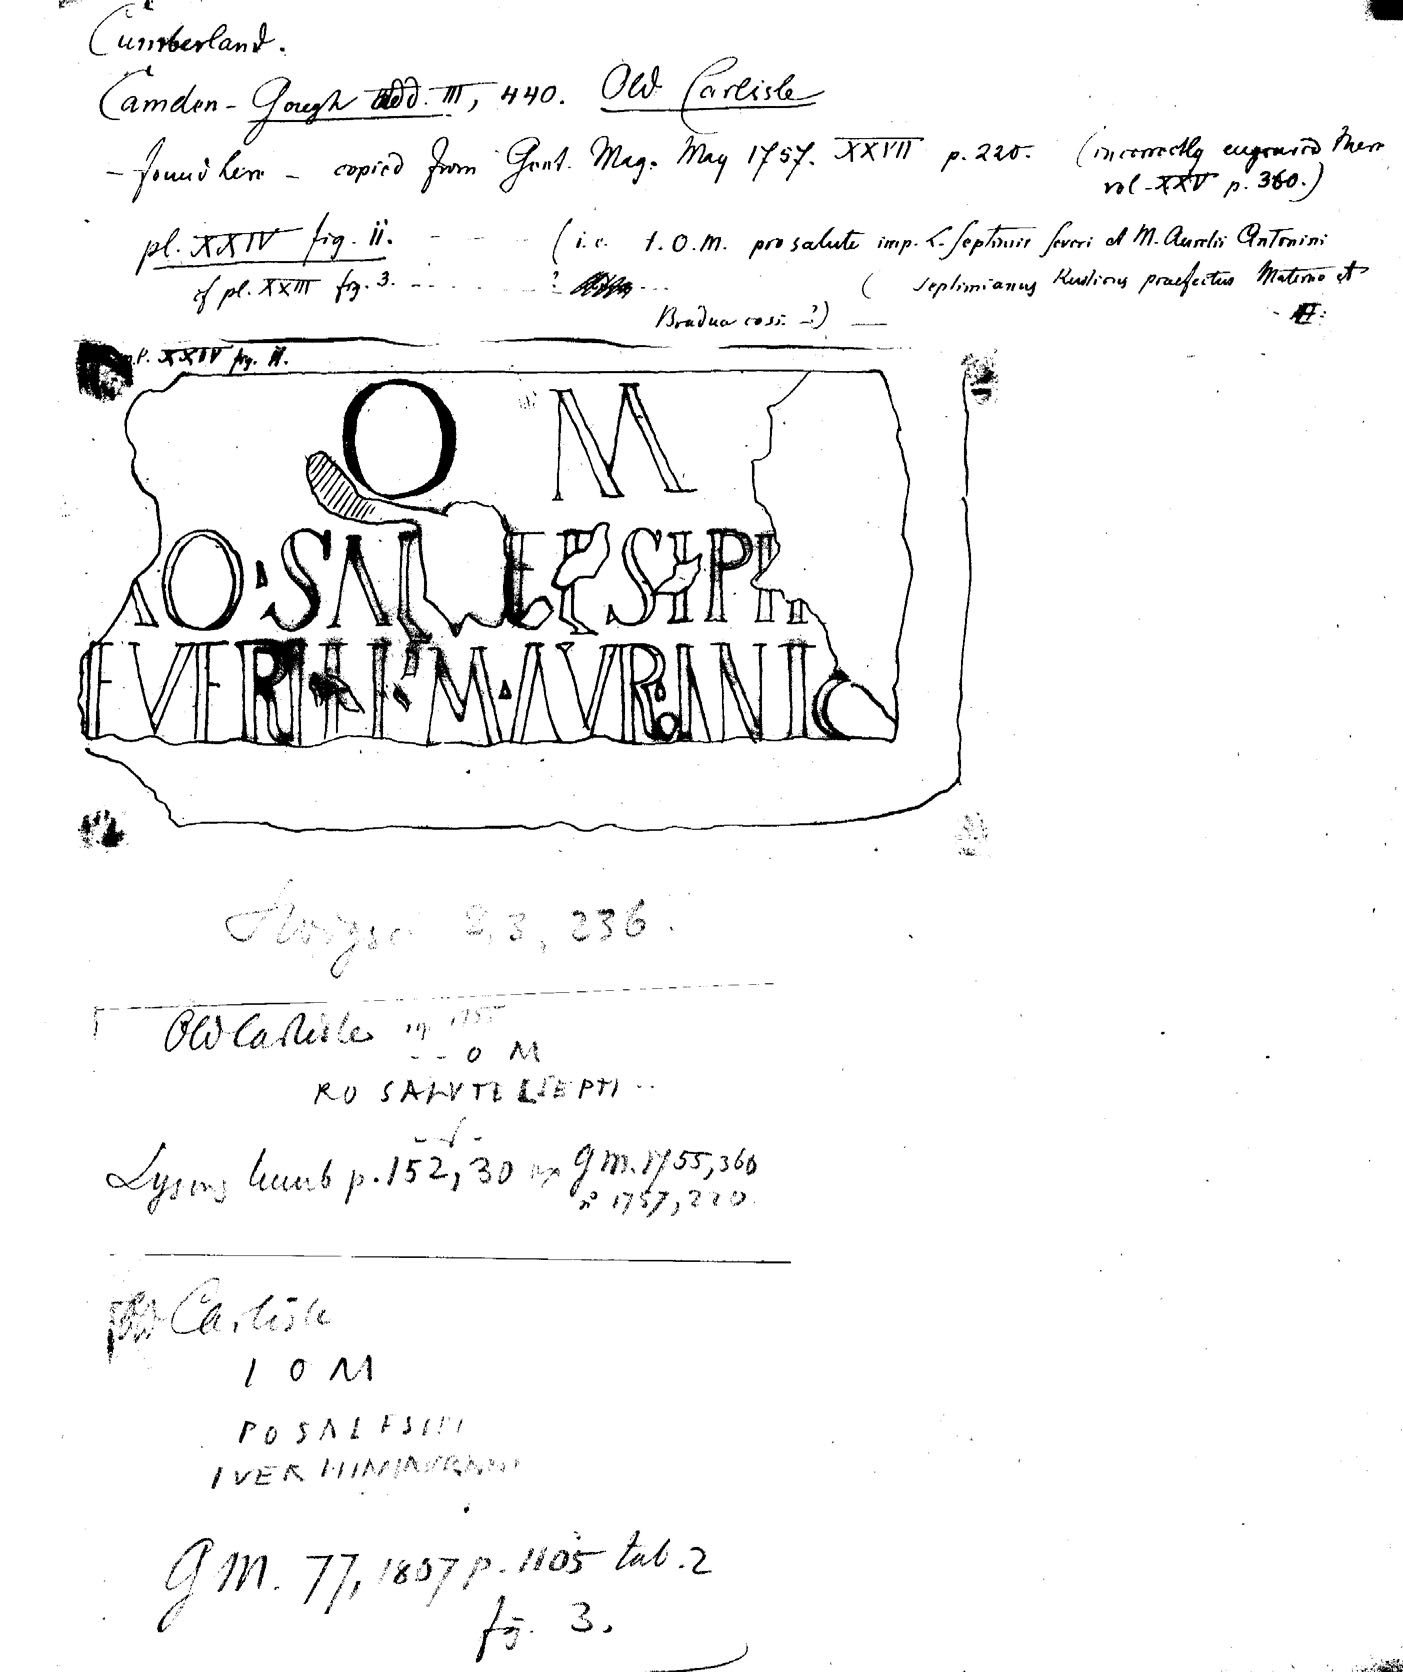 Cumberland.
Camden - Gough add. III, 440. Old Carlisle
- found here - copied from Gent. Mag. May 1757. XXVII p. 220. (incorrectly engraved there
vol. XXV p. 360.)
pl. XXIV fig. ii. - - - (i.e. I.O.M. pro salute imp. L. Septimii Severi et M. Aurelii Antonini
cf pl. XXIII fig. 3. - - - ? ... ( Septimianus Rusticus praefectus Materno et
Bradua coss. -?) —
pl. XXIV fig. ii.
O M
RO·SAL E SEPTI
EVERI M·AVR·ANTO
2,3, 236.
Old Carlisle 1755
- - O M
RO SALVTE LSEPTI ··
Lysons Cumb p. 152, 30 GM. 1755, 360
1757, 220.
Old Carlisle
I O M
PO SALESIII
IVER
GM. 77, 1807 p. 1105 tab. 2
fig. 3.